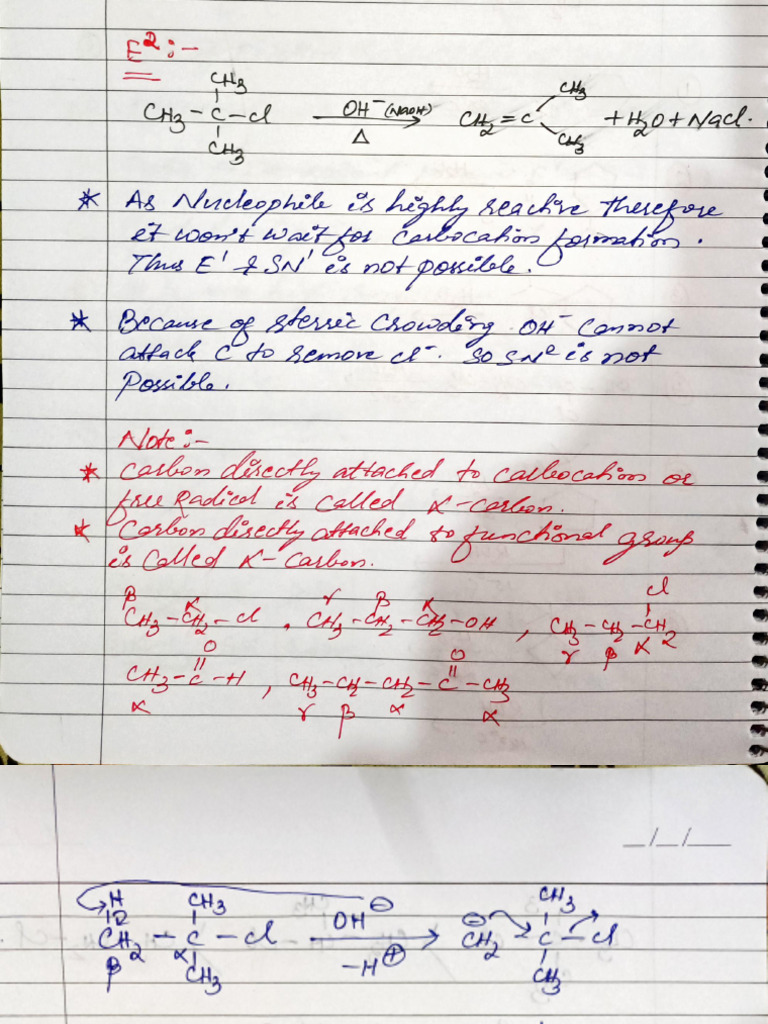 E²:-
CH₃
CH₃ - C - Cl  OH⁻(NaOH)  CH₂ = C  CH₃  + H₂O + NaCl.
CH₃  Δ  CH₃
* As Nucleophile is highly reactive therefore
it won't wait for Carbocation formation.
Thus E¹ & SN¹ is not possible.
* Because of sterric Crowding OH⁻ cannot
attack C to remove Cl⁻. So SN² is not
Possible.
Note:-
* Carbon directly attached to carbocation or
free Radical is called α-carbon.
* Carbon directly attached to functional group
is called α-Carbon.
β α γ β α Cl
CH₃ - CH₂ - Cl , CH₃ - CH₂ - CH₂ - OH , CH₃ - CH₂ - CH₂
γ β α
O O
CH₃ - C - H , CH₃ - CH₂ - CH₂ - C - CH₃
α γ β α α
__/__/____
H CH₃ ⊖ CH₃
CH₂ - C - Cl  OH  ⊖CH₂ C - Cl
β α CH₃ -H⊕ CH₃